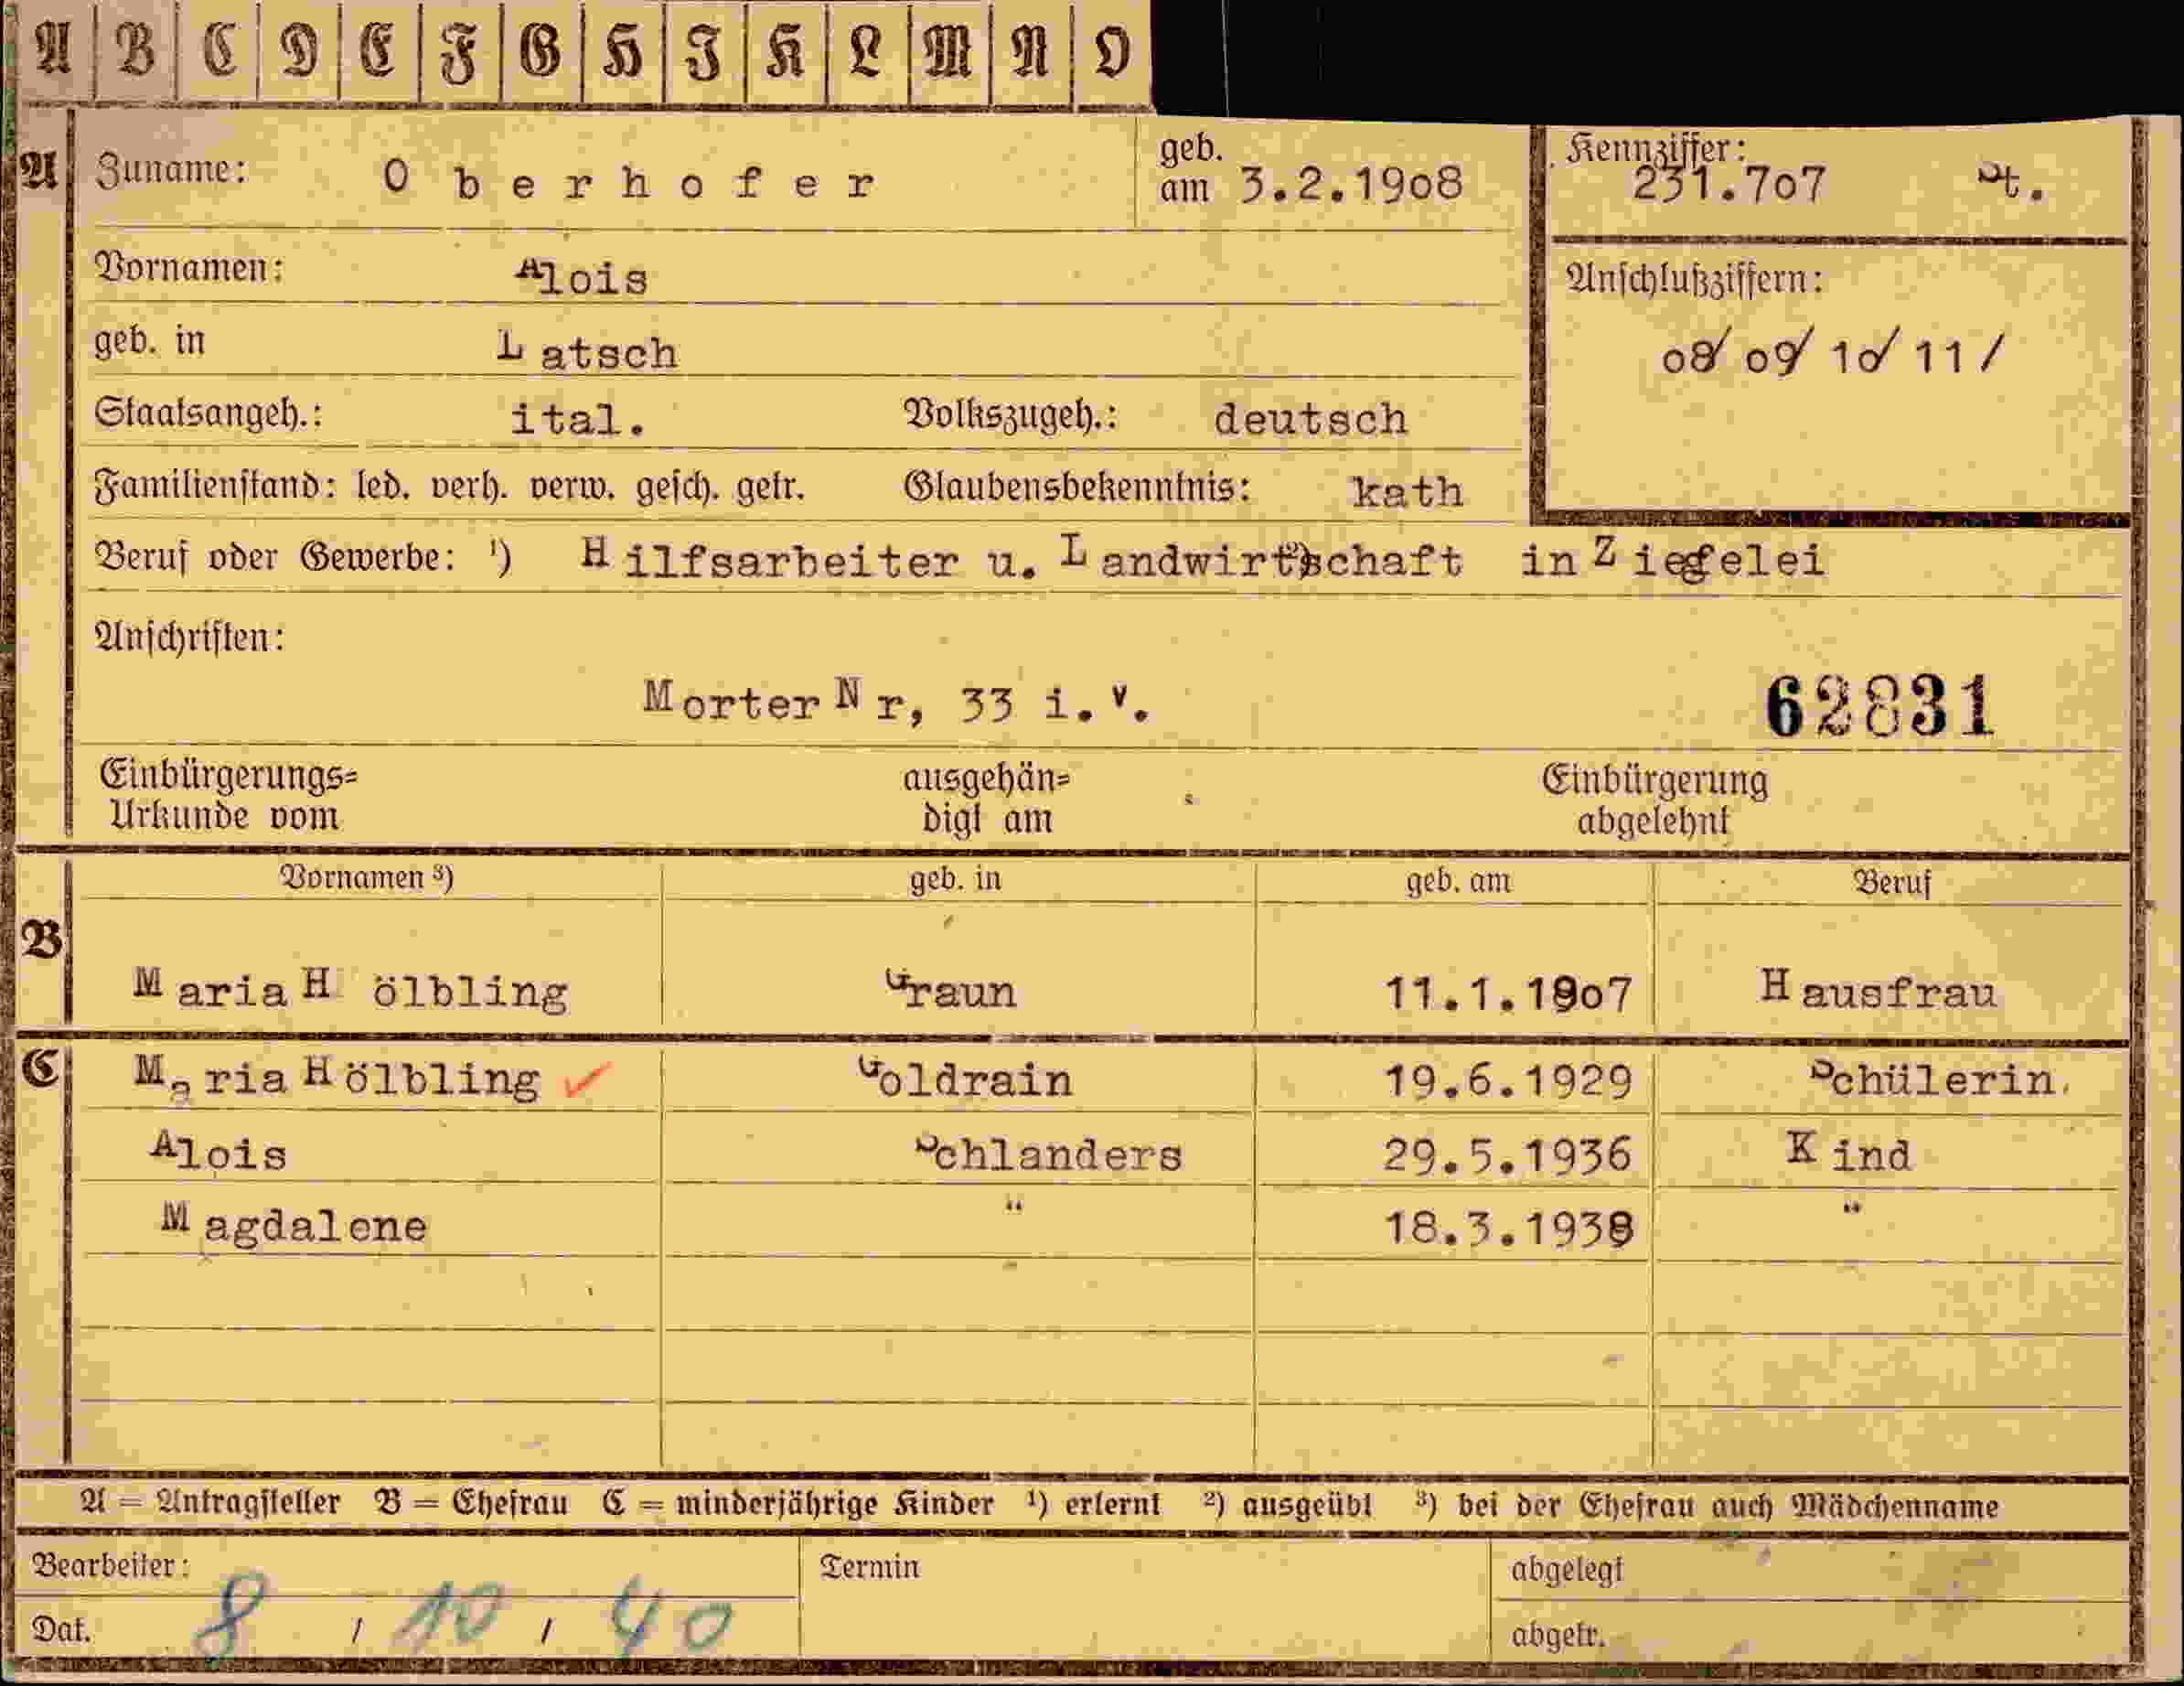 A B C D E F G H I K L M N O
A Zuname: Oberhofer geb. am 3.2.1908 Kennziffer: 231.707 St.
Vornamen: Alois Anschlußziffern:
geb. in Latsch 08/ 09/ 10/ 11/
Staatsangeh.: ital. Volkszugeh.: deutsch
Familienstand: led. verh. verw. gesch. getr. Glaubensbekenntnis: kath
Beruf oder Gewerbe: ¹) Hilfsarbeiter u. Landwirtschaft in Ziegelei
Anschriften:
Morter Nr, 33 i. V. 62831
Einbürgerungs= ausgehän= Einbürgerung
Urkunde vom digt am abgelehnt
Vornamen ³) geb. in geb. am Beruf
B
Maria Hölbling Graun 11.1.1907 Hausfrau
C Maria Hölbling ✓ Goldrain 19.6.1929 Schülerin.
Alois Schlanders 29.5.1936 Kind
Magdalene " 18.3.1938 "
A = Antragsteller B = Ehefrau C = minderjährige Kinder ¹) erlernt ²) ausgeübt ³) bei der Ehefrau auch Mädchenname
Bearbeiter: Termin abgelegt
Dat. 8 / 10 / 40 abgetr.